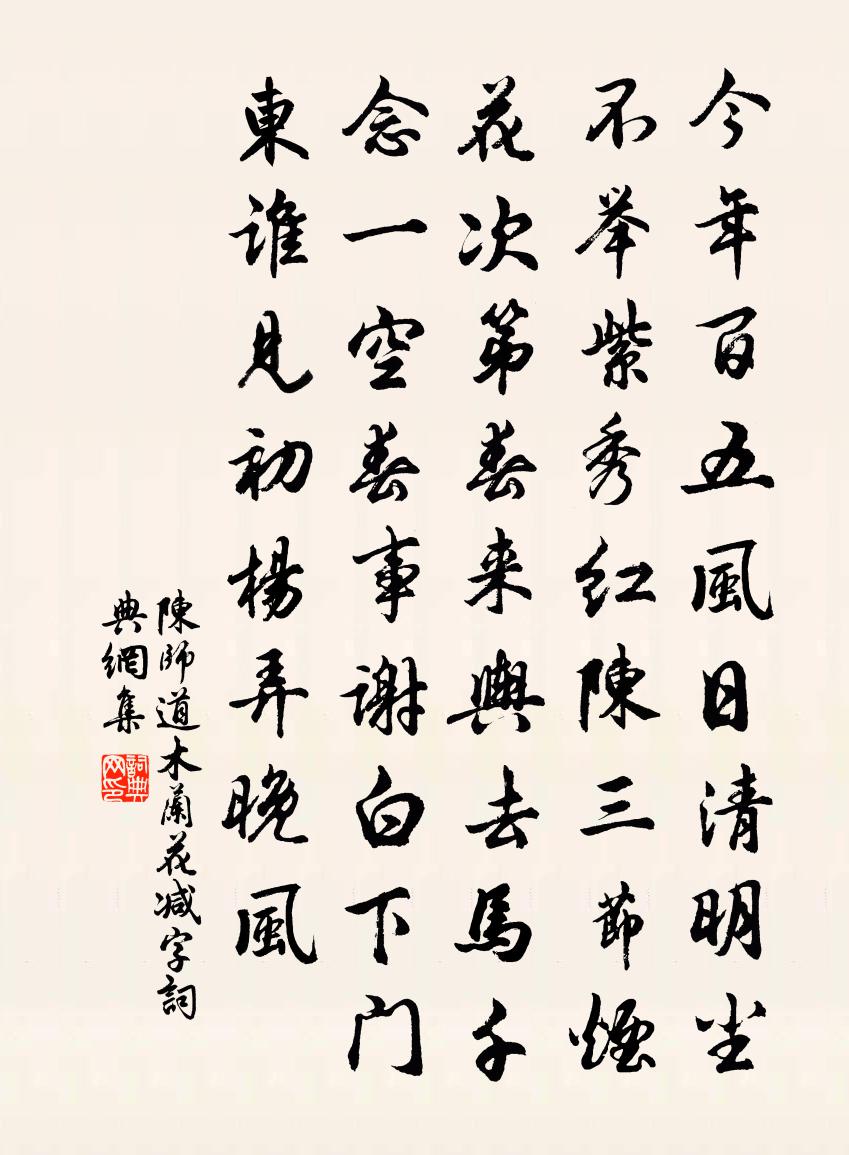 今年百五風日清明尘
不举紫秀红陳三節煙
花次第春来與去馬千
念一空春事谢白下门
東谁見初楊弄晚風
陳師道木蘭花减字詞
典網集
詞典网印